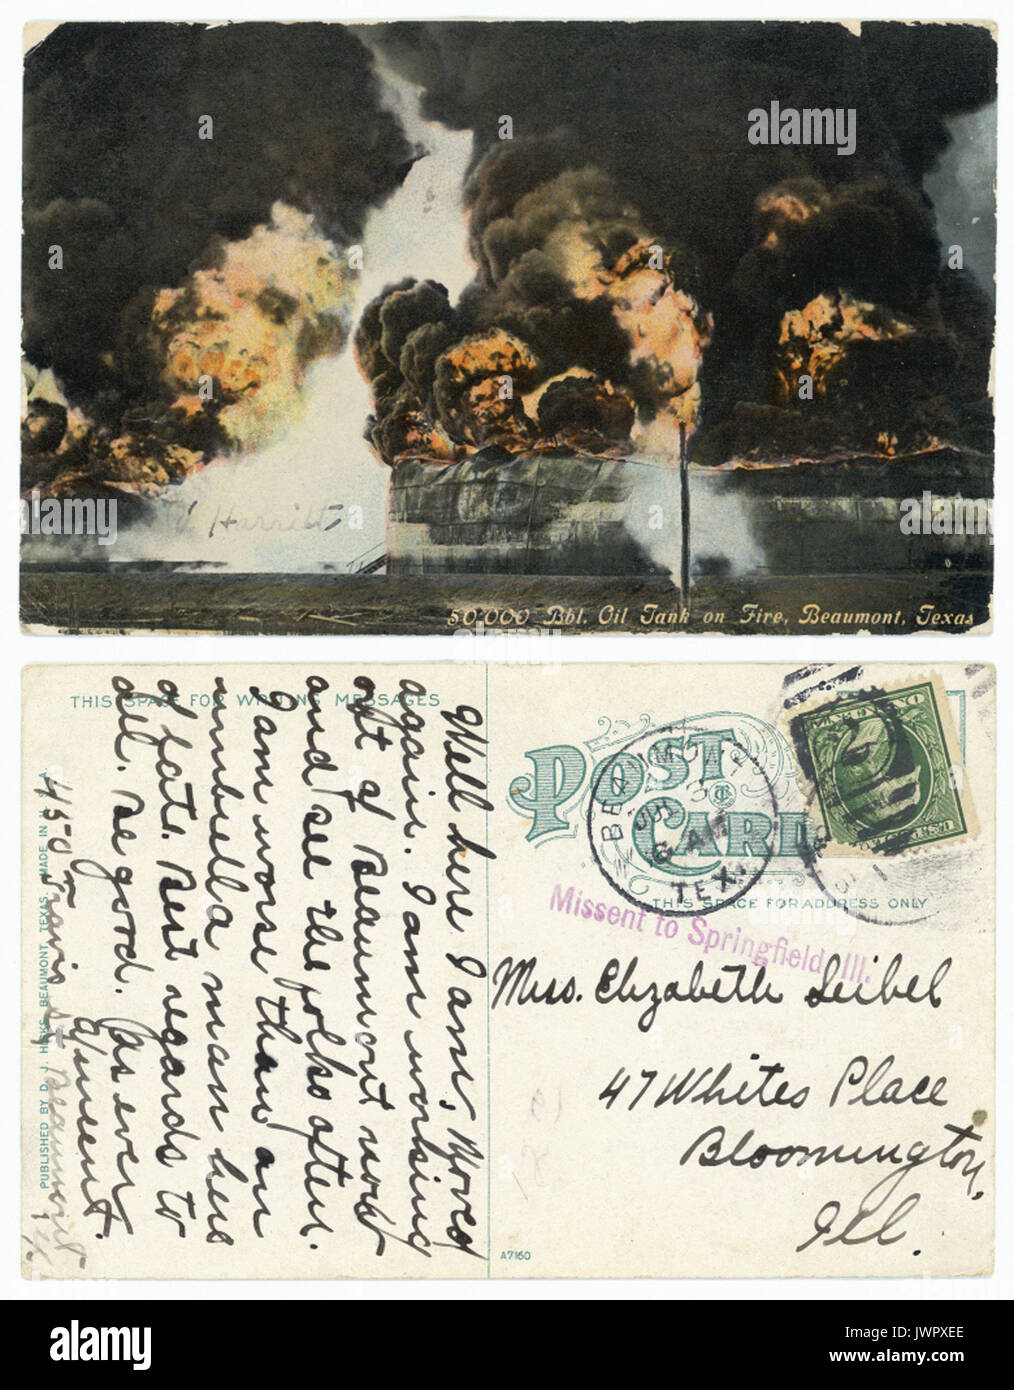 V Harritt
50,000 Bbl. Oil Tank on Fire, Beaumont, Texas
THIS SPACE FOR WRITING MESSAGES
Well here I am, Moved
again. I am working
out of Beaumont now
and see the folks often.
I am worse than an
umbrella man here
of late. Best regards to
all. Be good. As ever
Vincent.
450 Travis St
Beaumont
Tex
PUBLISHED BY D. J. HICKS, BEAUMONT, TEXAS. MADE IN U. S. A
POST CARD
THIS SPACE FOR ADDRESS ONLY
BEAUMONT
3
6 AM
TEX.
Missent to Springfield, Ill.
Mrs. Elizabeth Seibel
47 Whites Place
Bloomington,
Ill.
A7160
alamy
alamy stock photo
JWPXEE
www.alamy.com